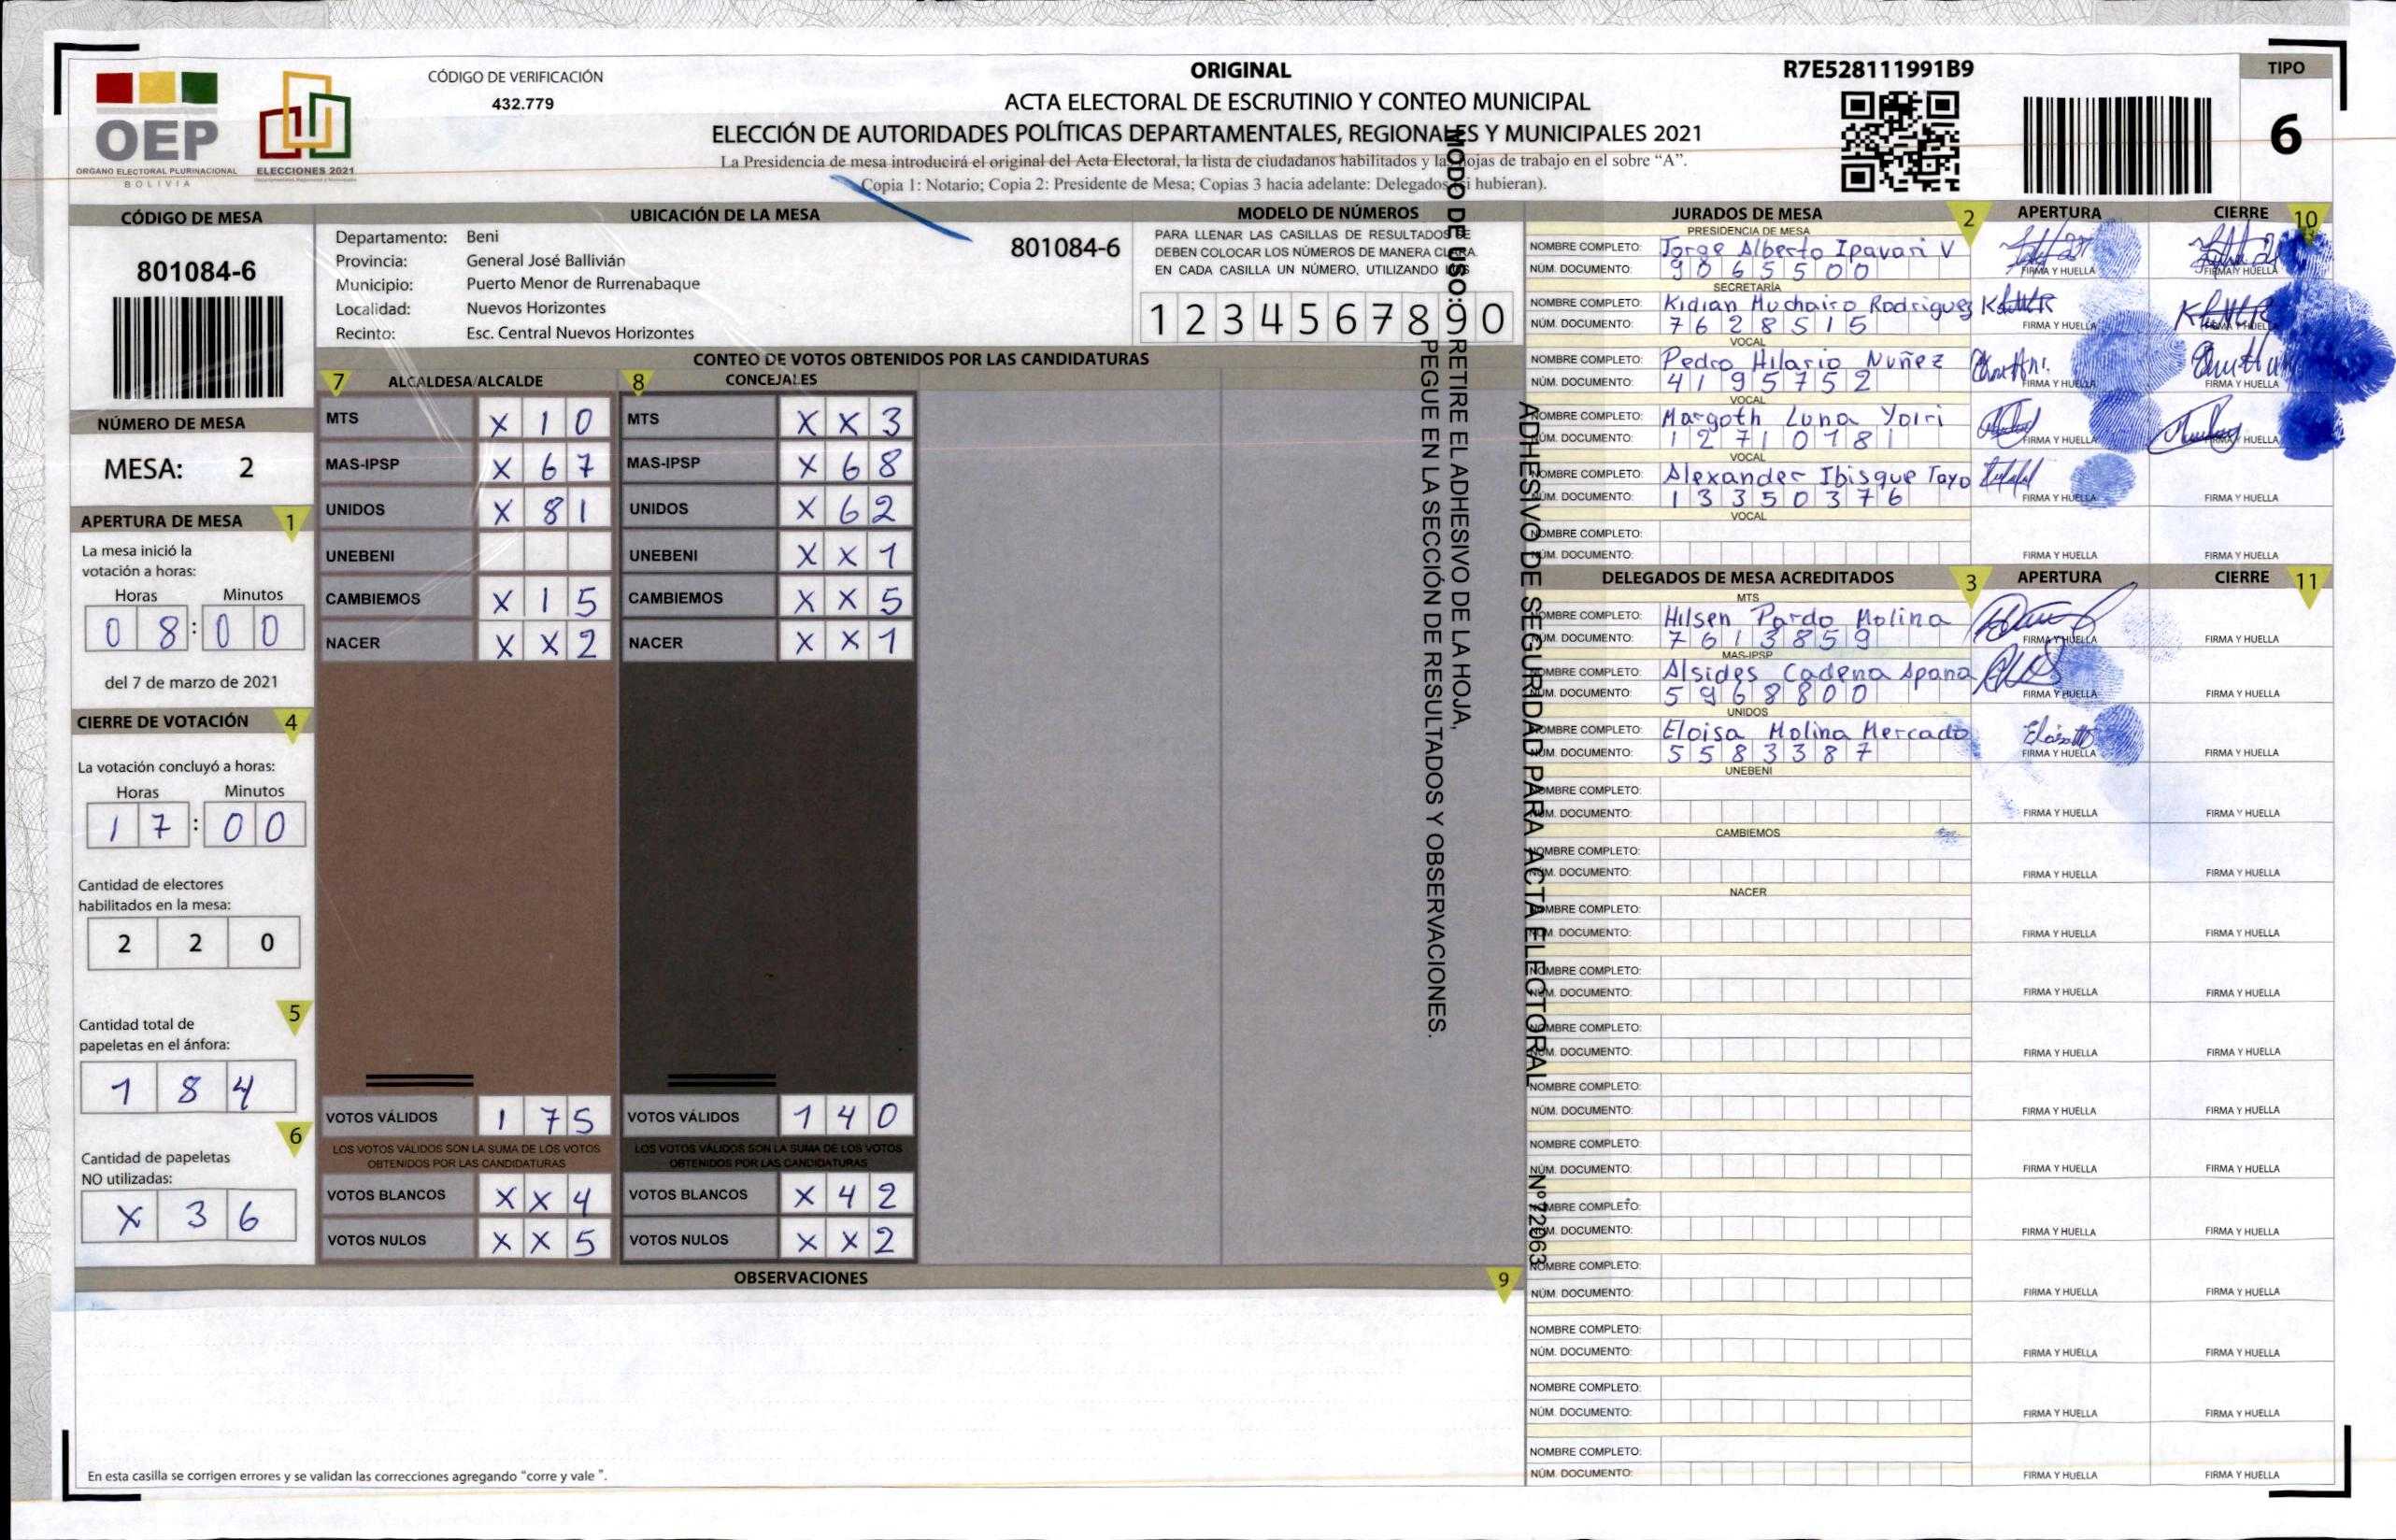 CÓDIGO DE VERIFICACIÓN
432.779
OEP
ÓRGANO ELECTORAL PLURINACIONAL
BOLIVIA
ELECCIONES 2021
ORIGINAL
ACTA ELECTORAL DE ESCRUTINIO Y CONTEO MUNICIPAL
ELECCIÓN DE AUTORIDADES POLÍTICAS DEPARTAMENTALES, REGIONALES Y MUNICIPALES 2021
La Presidencia de mesa introducirá el original del Acta Electoral, la lista de ciudadanos habilitados y las hojas de trabajo en el sobre “A”.
Copia 1: Notario; Copia 2: Presidente de Mesa; Copias 3 hacia adelante: Delegados (si hubieran).
R7E528111991B9
TIPO
6
CÓDIGO DE MESA
801084-6
NÚMERO DE MESA
MESA: 2
APERTURA DE MESA 1
La mesa inició la
votación a horas:
Horas Minutos
0 8 : 0 0
del 7 de marzo de 2021
CIERRE DE VOTACIÓN 4
La votación concluyó a horas:
Horas Minutos
1 7 : 0 0
Cantidad de electores
habilitados en la mesa:
2 2 0
5
Cantidad total de
papeletas en el ánfora:
1 8 4
6
Cantidad de papeletas
NO utilizadas:
X 3 6
UBICACIÓN DE LA MESA
Departamento: Beni
Provincia: General José Ballivián
Municipio: Puerto Menor de Rurrenabaque
Localidad: Nuevos Horizontes
Recinto: Esc. Central Nuevos Horizontes
801084-6
MODELO DE NÚMEROS
PARA LLENAR LAS CASILLAS DE RESULTADOS SE
DEBEN COLOCAR LOS NÚMEROS DE MANERA CLARA
EN CADA CASILLA UN NÚMERO, UTILIZANDO
1 2 3 4 5 6 7 8 9 0
CONTEO DE VOTOS OBTENIDOS POR LAS CANDIDATURAS
7 ALCALDESA/ALCALDE
MTS X 1 0
MAS-IPSP X 6 7
UNIDOS X 8 1
UNEBENI
CAMBIEMOS X 1 5
NACER X X 2
VOTOS VÁLIDOS 1 7 5
LOS VOTOS VÁLIDOS SON LA SUMA DE LOS VOTOS
OBTENIDOS POR LAS CANDIDATURAS
VOTOS BLANCOS X X 4
VOTOS NULOS X X 5
8 CONCEJALES
MTS X X 3
MAS-IPSP X 6 8
UNIDOS X 6 2
UNEBENI X X 1
CAMBIEMOS X X 5
NACER X X 1
VOTOS VÁLIDOS 1 4 0
LOS VOTOS VÁLIDOS SON LA SUMA DE LOS VOTOS
OBTENIDOS POR LAS CANDIDATURAS
VOTOS BLANCOS X 4 2
VOTOS NULOS X X 2
MODO DE USO: RETIRE EL ADHESIVO DE LA HOJA,
PEGUE EN LA SECCIÓN DE RESULTADOS Y OBSERVACIONES.
ADHESIVO DE SEGURIDAD PARA ACTA ELECTORAL
Nº722063
OBSERVACIONES 9
En esta casilla se corrigen errores y se validan las correcciones agregando “corre y vale ”.
JURADOS DE MESA 2 APERTURA CIERRE 10
PRESIDENCIA DE MESA
NOMBRE COMPLETO: Jorge Alberto Ipavari V
NÚM. DOCUMENTO: 9 0 6 5 5 0 0
FIRMA Y HUELLA FIRMA Y HUELLA
SECRETARÍA
NOMBRE COMPLETO: Kidian Muchairo Rodriguez
NÚM. DOCUMENTO: 7 6 2 8 5 1 5
FIRMA Y HUELLA FIRMA Y HUELLA
VOCAL
NOMBRE COMPLETO: Pedro Hilario Nuñez
NÚM. DOCUMENTO: 4 1 9 5 7 5 2
FIRMA Y HUELLA FIRMA Y HUELLA
VOCAL
NOMBRE COMPLETO: Margoth Luna Yoiri
NÚM. DOCUMENTO: 1 2 7 1 0 7 8 1
FIRMA Y HUELLA FIRMA Y HUELLA
VOCAL
NOMBRE COMPLETO: Alexander Ibisque Tayo
NÚM. DOCUMENTO: 1 3 3 5 0 3 7 6
FIRMA Y HUELLA FIRMA Y HUELLA
VOCAL
NOMBRE COMPLETO:
NÚM. DOCUMENTO:
FIRMA Y HUELLA FIRMA Y HUELLA
DELEGADOS DE MESA ACREDITADOS 3 APERTURA CIERRE 11
MTS
NOMBRE COMPLETO: Hilsen Pardo Molina
NÚM. DOCUMENTO: 7 6 1 3 8 5 9
FIRMA Y HUELLA FIRMA Y HUELLA
MAS-IPSP
NOMBRE COMPLETO: Alsides Cadena Apana
NÚM. DOCUMENTO: 5 9 6 8 8 0 0
FIRMA Y HUELLA FIRMA Y HUELLA
UNIDOS
NOMBRE COMPLETO: Eloisa Molina Mercado
NÚM. DOCUMENTO: 5 5 8 3 3 8 7
FIRMA Y HUELLA FIRMA Y HUELLA
UNEBENI
NOMBRE COMPLETO:
NÚM. DOCUMENTO:
FIRMA Y HUELLA FIRMA Y HUELLA
CAMBIEMOS
NOMBRE COMPLETO:
NÚM. DOCUMENTO:
FIRMA Y HUELLA FIRMA Y HUELLA
NACER
NOMBRE COMPLETO:
NÚM. DOCUMENTO:
FIRMA Y HUELLA FIRMA Y HUELLA
NOMBRE COMPLETO:
NÚM. DOCUMENTO:
FIRMA Y HUELLA FIRMA Y HUELLA
NOMBRE COMPLETO:
NÚM. DOCUMENTO:
FIRMA Y HUELLA FIRMA Y HUELLA
NOMBRE COMPLETO:
NÚM. DOCUMENTO:
FIRMA Y HUELLA FIRMA Y HUELLA
NOMBRE COMPLETO:
NÚM. DOCUMENTO:
FIRMA Y HUELLA FIRMA Y HUELLA
NOMBRE COMPLETO:
NÚM. DOCUMENTO:
FIRMA Y HUELLA FIRMA Y HUELLA
NOMBRE COMPLETO:
NÚM. DOCUMENTO:
FIRMA Y HUELLA FIRMA Y HUELLA
NOMBRE COMPLETO:
NÚM. DOCUMENTO:
FIRMA Y HUELLA FIRMA Y HUELLA
NOMBRE COMPLETO:
NÚM. DOCUMENTO:
FIRMA Y HUELLA FIRMA Y HUELLA
NOMBRE COMPLETO:
NÚM. DOCUMENTO:
FIRMA Y HUELLA FIRMA Y HUELLA